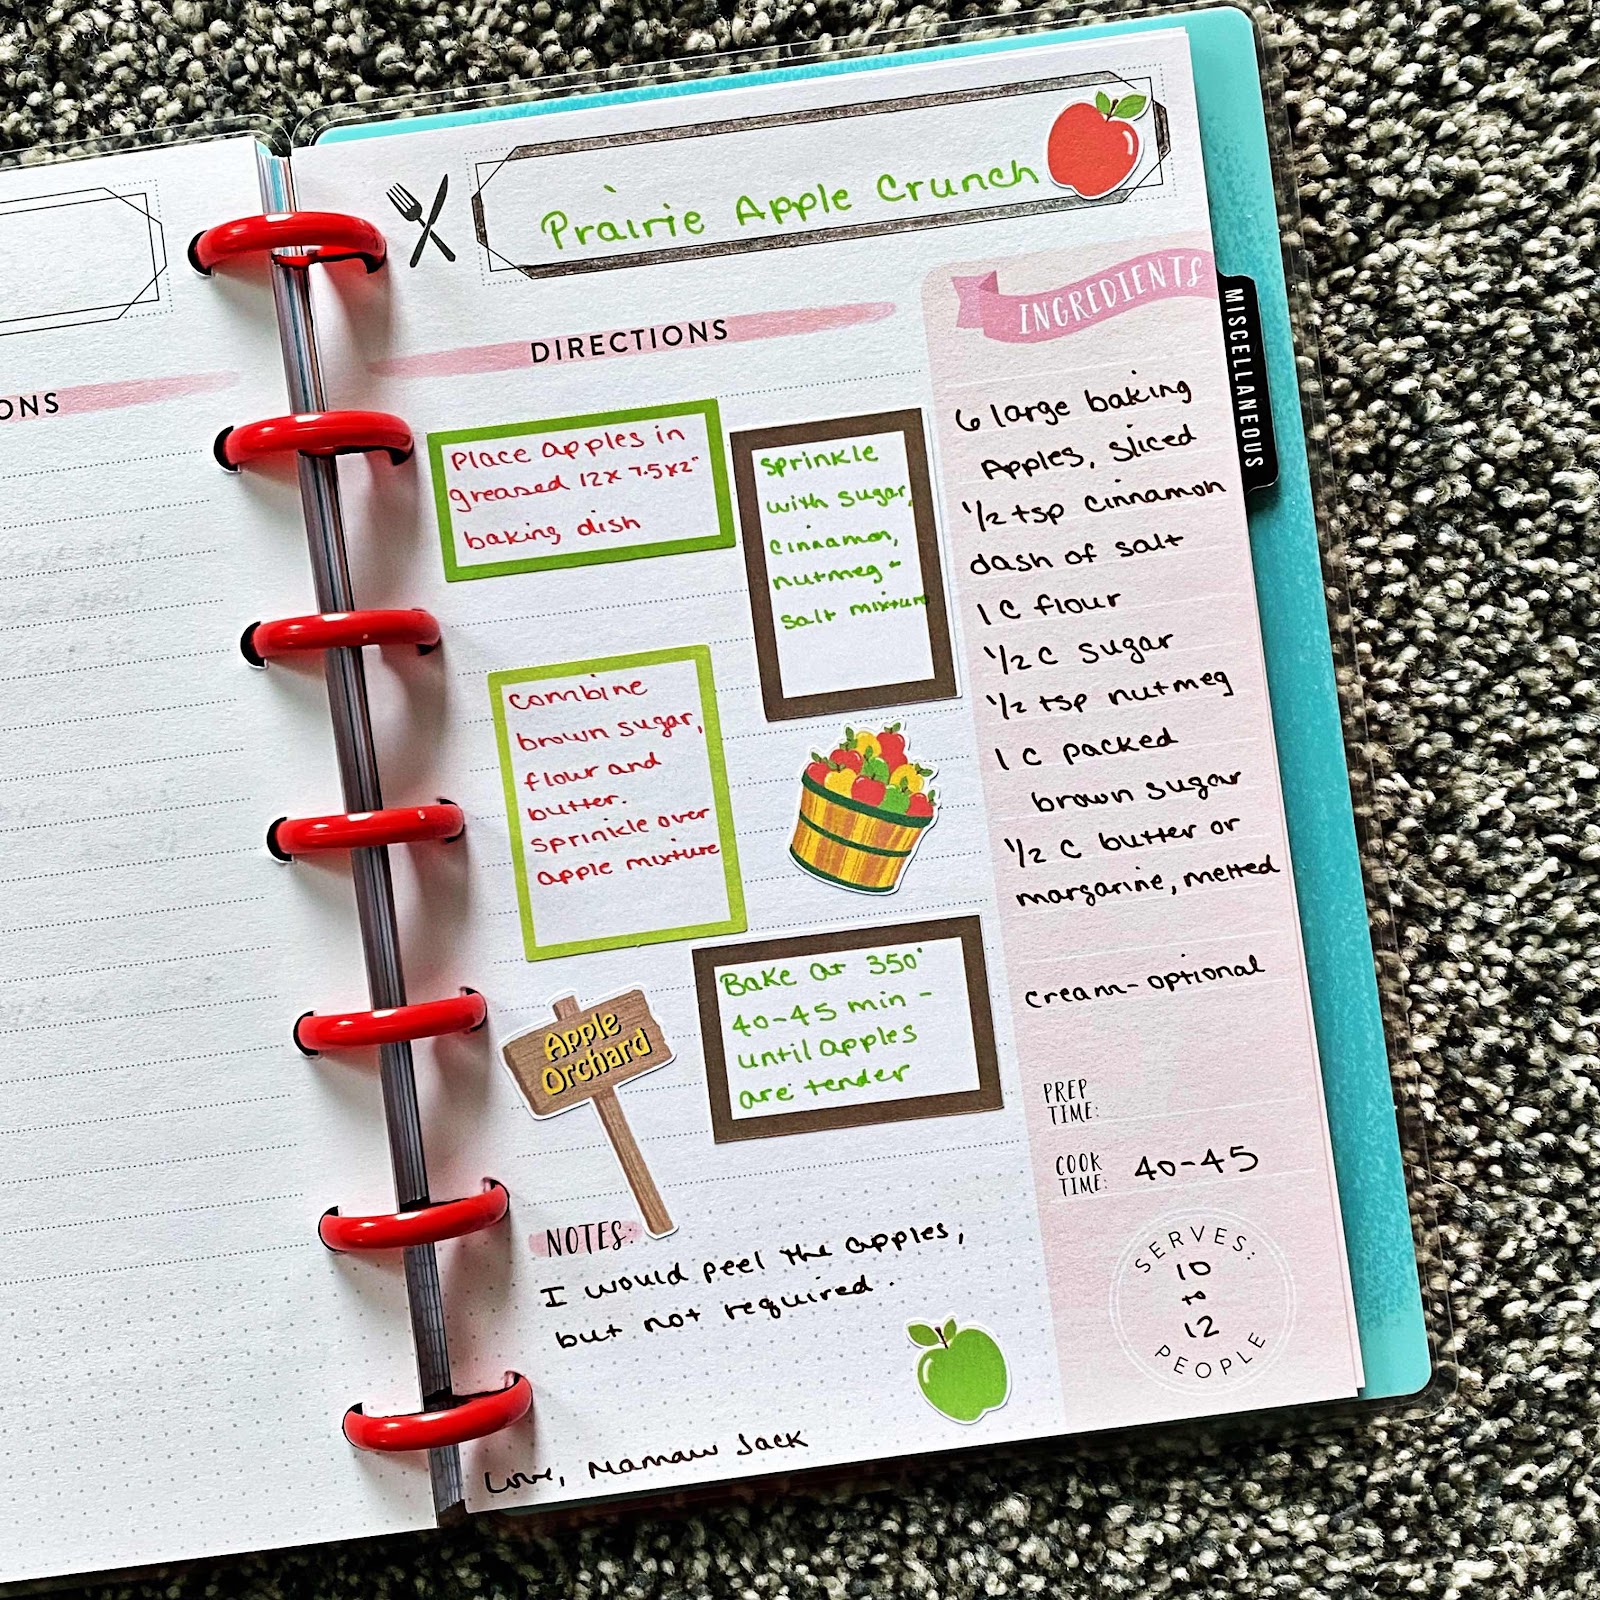 Prairie Apple Crunch
DIRECTIONS
Place apples in
greased 12x 7.5x2"
baking dish
sprinkle
with sugar,
cinnamon,
nutmeg +
salt mixture
combine
brown sugar,
flour and
butter.
sprinkle over
apple mixture
Bake at 350°
40-45 min -
until apples
are tender
Apple
Orchard
NOTES:
I would peel the apples,
but not required.
Love, Mamaw Jack
INGREDIENTS
6 large baking
Apples, sliced
1/2 tsp cinnamon
dash of salt
1 C flour
1/2 C sugar
1/2 tsp nutmeg
1 C packed
brown sugar
1/2 C butter or
margarine, melted
cream-optional
PREP
TIME:
COOK
TIME: 40-45
SERVES:
10
to
12
PEOPLE
MISCELLANEOUS
ONS